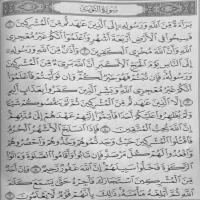 سورة التوبة
براءة من الله ورسوله إلى الذين عاهدتم من المشركين ١
فسيحوا في الأرض أربعة أشهر واعلموا أنكم غير معجزي
الله وأن الله مخزي الكافرين ٢ وأذان من الله ورسوله
إلى الناس يوم الحج الأكبر أن الله بريء من المشركين
ورسوله فإن تبتم فهو خير لكم وإن توليتم فاعلموا
أنكم غير معجزي الله وبشر الذين كفروا بعذاب أليم
٣ إلا الذين عاهدتم من المشركين ثم لم ينقصوكم شيئا
ولم يظاهروا عليكم أحدا فأتموا إليهم عهدهم إلى مدتهم
إن الله يحب المتقين ٤ فإذا انسلخ الأشهر الحرم
فاقتلوا المشركين حيث وجدتموهم وخذوهم واحصروهم
واقعدوا لهم كل مرصد فإن تابوا وأقاموا الصلاة وآتوا
الزكاة فخلوا سبيلهم إن الله غفور رحيم ٥ وإن أحد
من المشركين استجارك فأجره حتى يسمع كلام
الله ثم أبلغه مأمنه ذلك بأنهم قوم لا يعلمون ٦